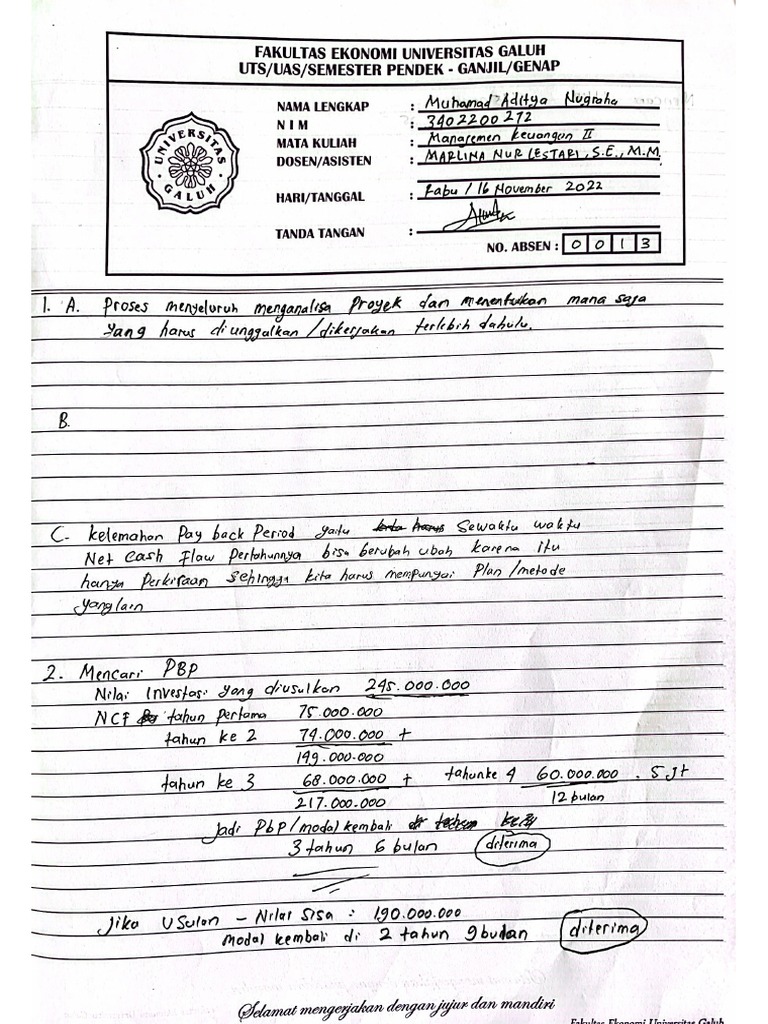 FAKULTAS EKONOMI UNIVERSITAS GALUH
UTS/UAS/SEMESTER PENDEK - GANJIL/GENAP
UNIVERSITAS GALUH
NAMA LENGKAP : Muhamad Aditya Nugraha
N I M : 3402200272
MATA KULIAH : Manajemen Keuangan II
DOSEN/ASISTEN : MARLINA NUR LESTARI, S.E., M.M.
HARI/TANGGAL : Rabu / 16 November 2022
TANDA TANGAN :
NO. ABSEN : 0 0 1 3
1. A. Proses menyeluruh menganalisa Proyek dan menentukan mana saja
yang harus diunggulkan/dikerjakan terlebih dahulu.
B.
C. Kelemahan Pay back Period yaitu kita harus Sewaktu waktu
Net Cash Flaw Pertahunnya bisa berubah ubah karena itu
hanya Perkiraan sehingga kita harus mempunyai Plan/metode
yang lain
2. Mencari PBP
Nilai Investasi yang diusulkan 245.000.000
NCF tahun Pertama 75.000.000
tahun ke 2 74.000.000 +
149.000.000
tahun ke 3 68.000.000 + tahun ke 4 60.000.000 . 5 Jt
217.000.000 12 bulan
Jadi PbP/modal kembali
3 tahun 6 bulan diterima
Jika Usulan - Nilai Sisa : 190.000.000
modal kembali di 2 tahun 9 budan diterima
Selamat mengerjakan dengan jujur dan mandiri
Fakultas Ekonomi Universitas Galuh